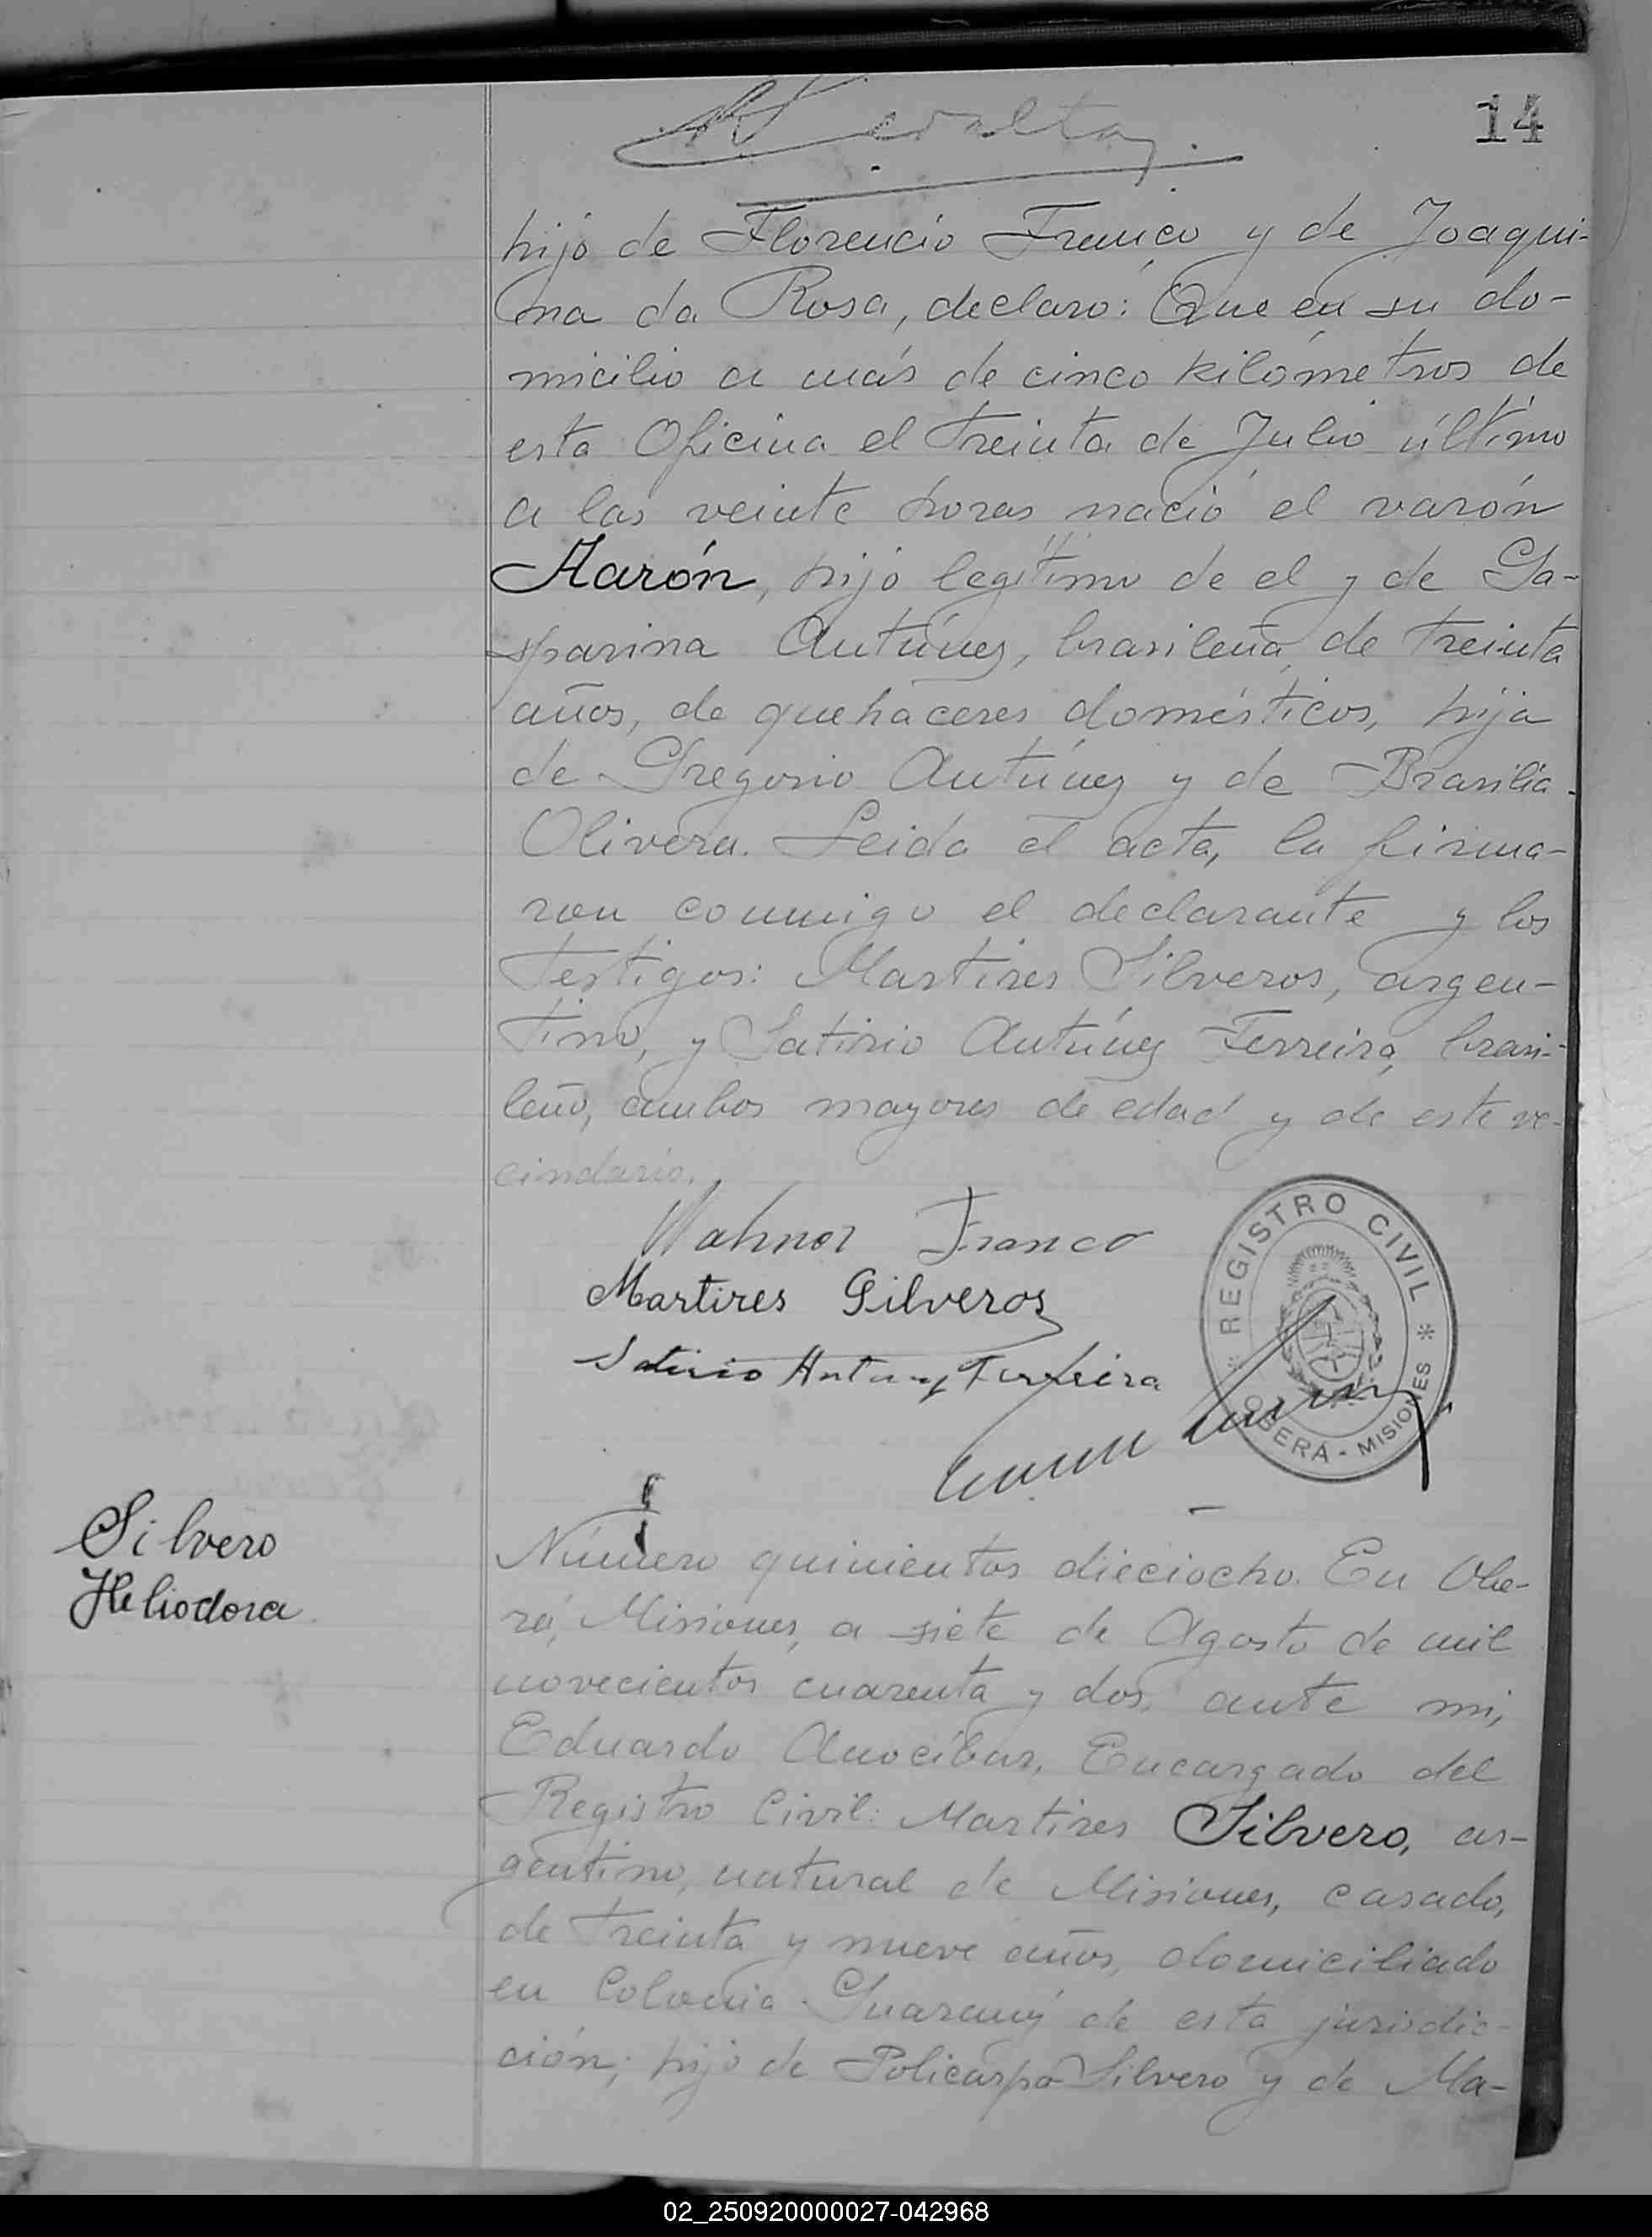 14
hijo de Florencio Franco y de Joaqui-
na da Rosa, declaró: Que en su do-
micilio a más de cinco kilómetros de
esta Oficina el treinta de Julio último
a las veinte horas nació el varón
Aarón, hijo legítimo de el y de Ga-
sparina Antúnez, brasileña, de treinta
años, de quehaceres domésticos, hija
de Gregorio Antúnez y de Brasilia
Olivera. Leida el acta, la firma-
ron conmigo el declarante y los
testigos: Martires Silveros, argen-
tino, y Satirio Antúnez Ferreira, brasi-
leño, ambos mayores de edad y de este ve-
cindario.
Franco
Martires Silveros
Satirio Antunez Ferreira
REGISTRO CIVIL
OBERÁ - MISIONES
Silvero
Heliodora
Número quinientos dieciocho. En Obe-
rá, Misiones, a siete de Agosto de mil
novecientos cuarenta y dos, ante mi,
Eduardo Anocíbar, Encargado del
Registro Civil: Martires Silvero, ar-
gentino, natural de Misiones, casado,
de treinta y nueve años, domiciliado
en Colonia Guaraný de esta jurisdic-
ción; hijo de Policarpo Silvero y de Ma-
02_250920000027-042968